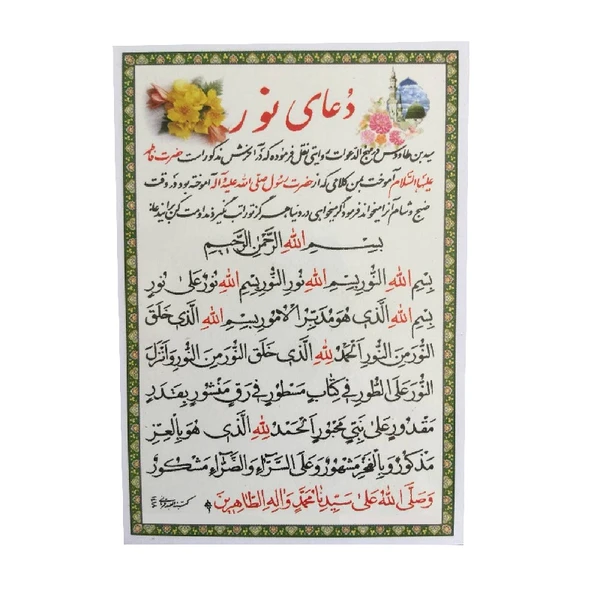 دُعای نور
سید بن طاووس در مهج الدعوات روایتی نقل فرموده که در آخرش مذکور است حضرت فاطمه
علیها السّلام آموخت بمن کلامی که از حضرت رسول صلّی الله علیه و آله آموخته بود و در وقت
صبح و شام آنرا میخواند فرمود اگر میخواهی در دنیا هرگز تو را تب نگیرد مداومت کن بر آن دعا
بِسْمِ اللهِ الرَّحْمنِ الرَّحیمِ
بِسْمِ اللهِ النُّورِ بِسْمِ اللهِ نُورِ النُّورِ بِسْمِ اللهِ نُورٌ عَلی نُورٍ
بِسْمِ اللهِ الَّذی هُوَ مُدَبِّرُ الْاُمُورِ بِسْمِ اللهِ الَّذی خَلَقَ
النُّورَ مِنَ النُّورِ اَلْحَمْدُ لِلّهِ الَّذی خَلَقَ النُّورَ مِنَ النُّورِ وَ اَنْزَلَ
النُّورَ عَلَی الطُّورِ فی کِتابٍ مَسْطُورٍ فی رَقٍّ مَنْشُورٍ بِقَدَرٍ
مَقْدُورٍ عَلی نَبِیٍّ مَحْبُورٍ اَلْحَمْدُ لِلّهِ الَّذی هُوَ بِالْعِزِّ
مَذْکُورٌ وَ بِالْفَخْرِ مَشْهُورٌ وَ عَلَی السَّرّاءِ وَ الضَّرّاءِ مَشْکُورٌ
وَ صَلَّی اللهُ عَلی سَیِّدِنا مُحَمَّدٍ وَ الِهِ الطّاهِرینَ